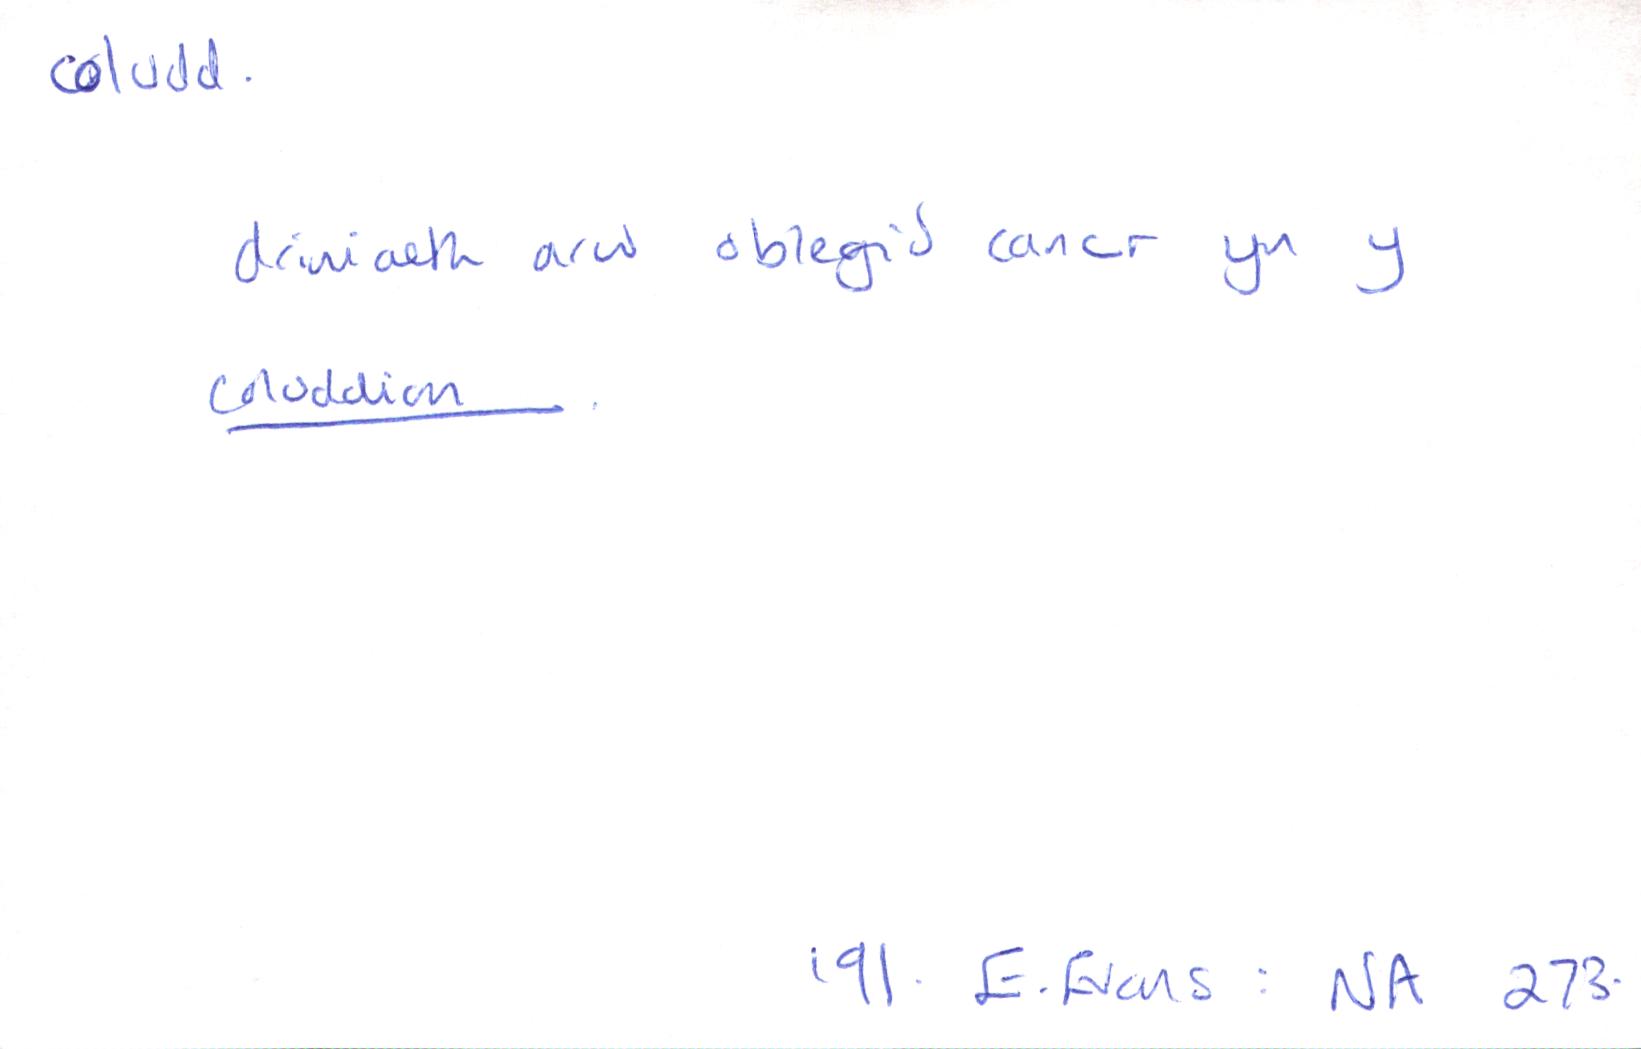 coludd.
driniaeth arw oblegid cancr yn y
coluddion.
i91. E. Evans: NA 273.